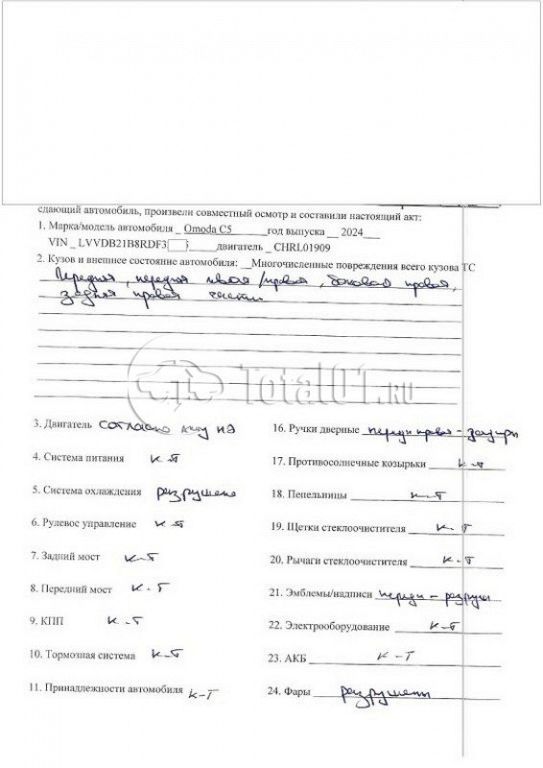 сдающий автомобиль, произвели совместный осмотр и составили настоящий акт:
1. Марка/модель автомобиля _ Omoda C5 год выпуска __ 2024
VIN _ LVVDB21B8RDF3 двигатель _ CHRL01909
2. Кузов и внешнее состояние автомобиля: __Многочисленные повреждения всего кузова ТС
Передняя, передняя левая/правая, боковая правая,
задняя правая части
Total01.RU
3. Двигатель согласно акту
4. Система питания к-т
5. Система охлаждения разрушено
6. Рулевое управление к-т
7. Задний мост к-т
8. Передний мост к-т
9. КПП к-т
10. Тормозная система к-т
11. Принадлежности автомобиля к-т
16. Ручки дверные передн правая - задиры
17. Противосолнечные козырьки к-т
18. Пепельницы к-т
19. Щетки стеклоочистителя к-т
20. Рычаги стеклоочистителя к-т
21. Эмблемы/надписи передн - разруш
22. Электрооборудование к-т
23. АКБ к-т
24. Фары разрушены